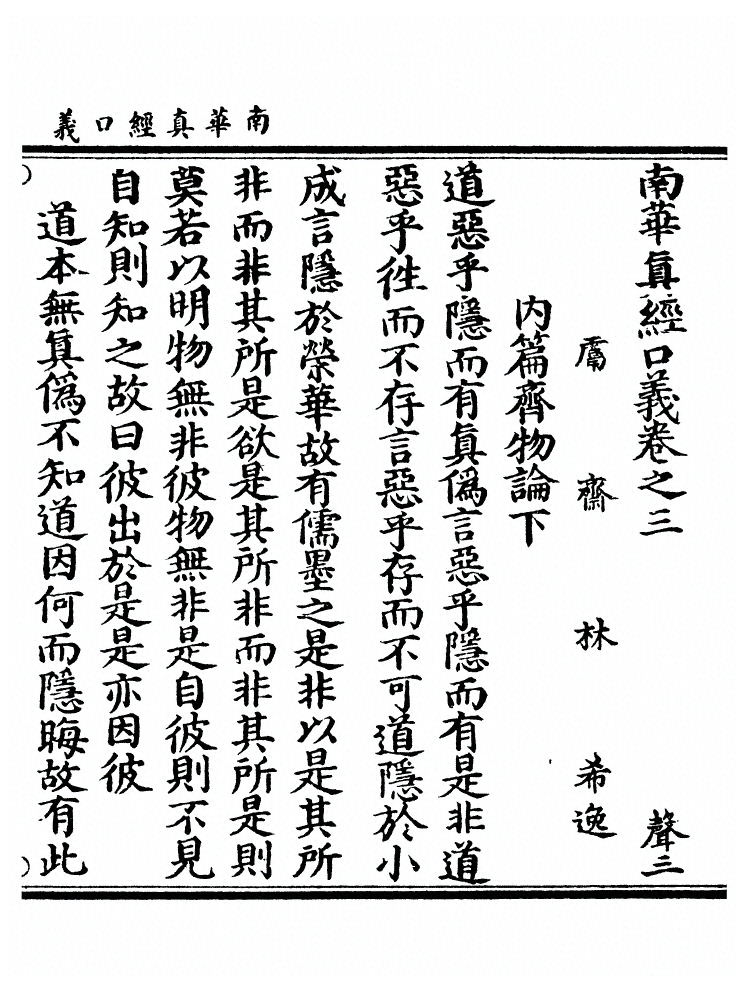 南華真經口義
南華眞經口義卷之三 聲三
鬳齋林希逸
內篇齊物論下
道惡乎隱而有眞僞言惡乎隱而有是非道
惡乎徃而不存言惡乎存而不可道隱於小
成言隱於榮華故有儒墨之是非以是其所
非而非其所是欲是其所非而非其所是則
莫若以明物無非彼物無非是自彼則不見
自知則知之故曰彼出於是是亦因彼
道本無眞僞不知道因何而隱晦故有此